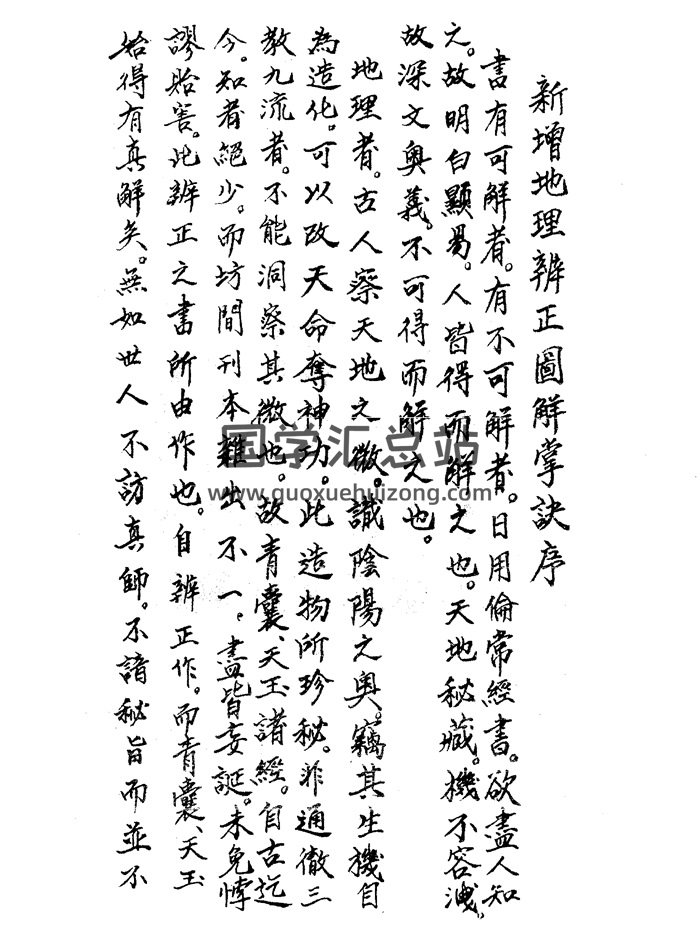 新增地理辨正圖解掌訣序
書有可解者。有不可解者。日用倫常經書。欲盡人知
之。故明白顯易。人皆得而解之也。天地秘藏。機不容洩。
故深文奥義。不可得而解之也。
地理者。古人察天地之微。識陰陽之奥。竊其生機自
為造化。可以改天命奪神功。此造物所珍秘。非通徹三
教九流者。不能洞察其微也。故青囊、天玉諸經。自古迄
今。知者絕少。而坊間刊本雜出不一。盡皆妄誕。未免悖
謬貽害。此辨正之書所由作也。自辨正作。而青囊、天玉
始得有真解矣。無如世人不訪真師。不諳秘旨而並不
国学汇总站
www.guoxuehuizong.com